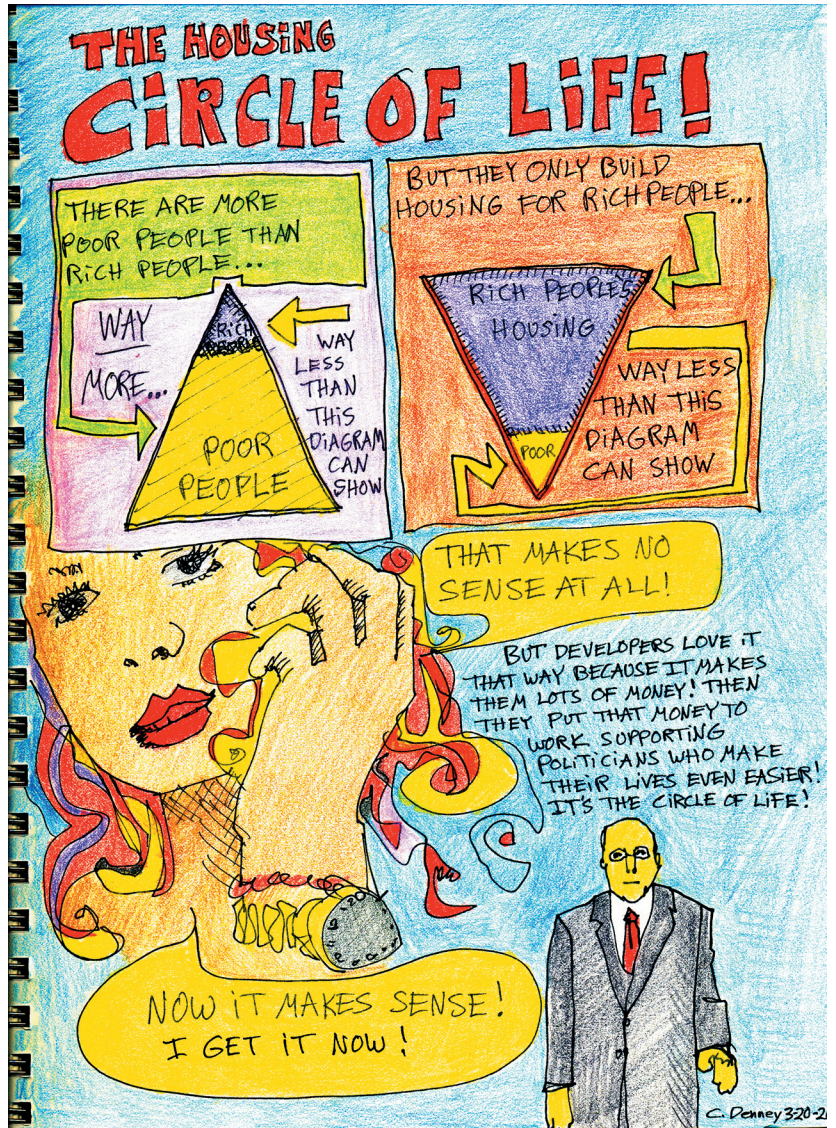 THE HOUSING
CIRCLE OF LIFE!
THERE ARE MORE
POOR PEOPLE THAN
RICH PEOPLE...
WAY
MORE...
RICH
PEOPLE
WAY
LESS
THAN
THIS
DIAGRAM
CAN
SHOW
POOR
PEOPLE
BUT THEY ONLY BUILD
HOUSING FOR RICH PEOPLE...
RICH PEOPLES
HOUSING
POOR
WAY LESS
THAN THIS
DIAGRAM
CAN SHOW
THAT MAKES NO
SENSE AT ALL!
BUT DEVELOPERS LOVE IT
THAT WAY BECAUSE IT MAKES
THEM LOTS OF MONEY! THEN
THEY PUT THAT MONEY TO
WORK SUPPORTING
POLITICIANS WHO MAKE
THEIR LIVES EVEN EASIER!
IT'S THE CIRCLE OF LIFE!
NOW IT MAKES SENSE!
I GET IT NOW!
C. Denney 3-20-2